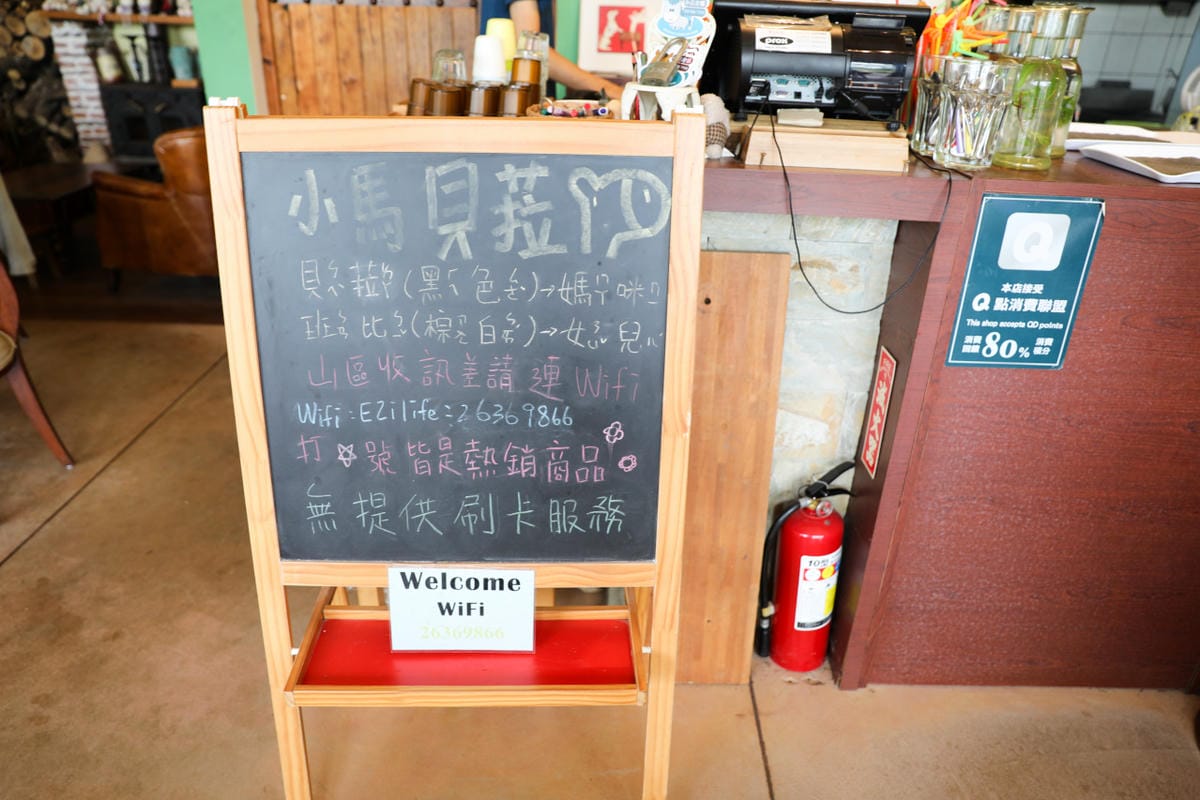 小馬貝菈
貝ㄟ菈ㄚ(黑ㄟ色ㄜˋ)→媽ㄇㄚ咪ㄇ
班ㄅㄢ比ㄅㄧˇ(棕ㄗㄨㄥ白ㄅㄞˊ)→女ㄋㄩˇ兒
山區收訊差請連 Wifi
Wifi:EZilife:26369866
打☆號皆是熱銷商品
無提供刷卡服務
Welcome
WiFi
26369866
prox
Q
本店接受
Q 點消費聯盟
This shop accepts QD points
消費回饋 80% 消費積分
10型